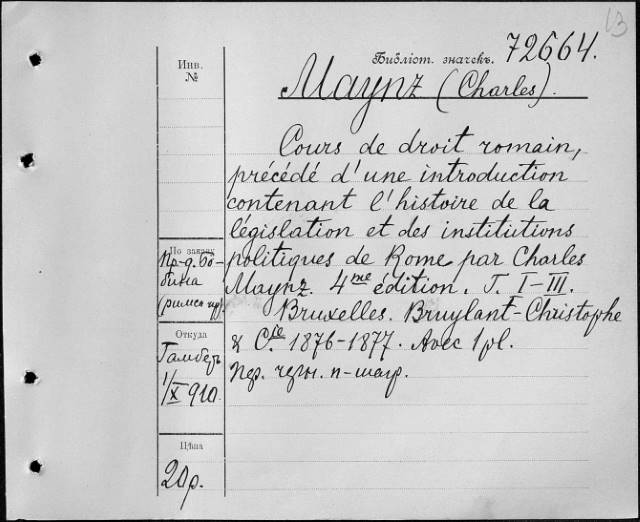 13
Библіот. значекъ. 72664.
Инв.
№
Maynz (Charles).
Cours de droit romain,
précédé d'une introduction
contenant l'histoire de la
législation et des institutions
politiques de Rome par Charles
Maynz. 4me édition. T. I-III.
Bruxelles. Bruylant-Christophe
& Cie 1876-1877. Avec 1 pl.
По заказу
Пр-д. Бо-
бина
Откуда
Гамберъ
1/X 910.
Цѣна
20р.